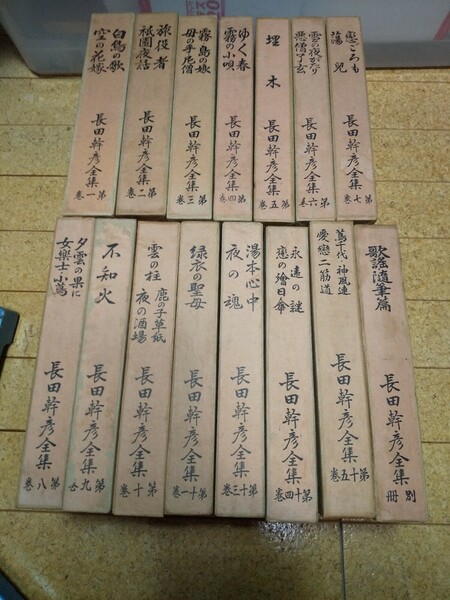 白鳥の歌
空の花嫁
長田幹彦全集
第一卷
旅役者
祇園夜話
長田幹彦全集
第二卷
霧島の娘
母の手尼僧
長田幹彦全集
第三卷
ゆく春
霧の小唄
長田幹彦全集
第四卷
埋木
長田幹彦全集
第五卷
雪の夜がたり
悪僧了玄
長田幹彦全集
第六卷
恋ごろも
蕩兒
長田幹彦全集
第七卷
夕雲の果に
女樂士小蔦
長田幹彦全集
第八卷
不知火
長田幹彦全集
第九卷
雲の柱
鹿の子草紙
夜の酒場
長田幹彦全集
第十卷
緑衣の聖母
長田幹彦全集
第十一卷
湯本心中
夜の魂
長田幹彦全集
第十三卷
永遠の謎
戀の繪日傘
長田幹彦全集
第十四卷
蔦千代
神風連
愛戀二筋道
長田幹彦全集
第十五卷
歌謡隨筆篇
長田幹彦全集
別冊